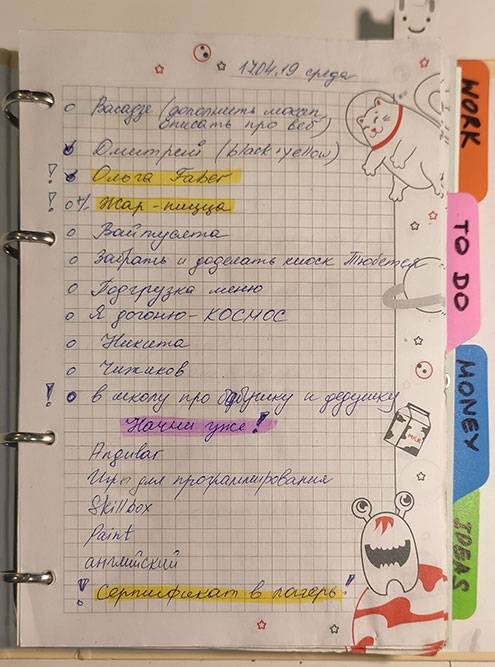 17.04.19 среда
Васадзе (дополнить мокап,
списать про веб)
Дмитрий (black+yellow)
! Ольга Faber
! Жар-пицца
Вайтусята
Забрать и доделать киоск Тюбетей
Подгрузка меню
Я догоню - КОСМОС
Никита
Чижиков
! в школу про бабушку и дедушку
Начни уже!
Andivar
Игры для программирования
Skillbox
Paint
английский
! Сертификат в лагерь!
WORK
TO DO
MONEY
IDEAS
MILK